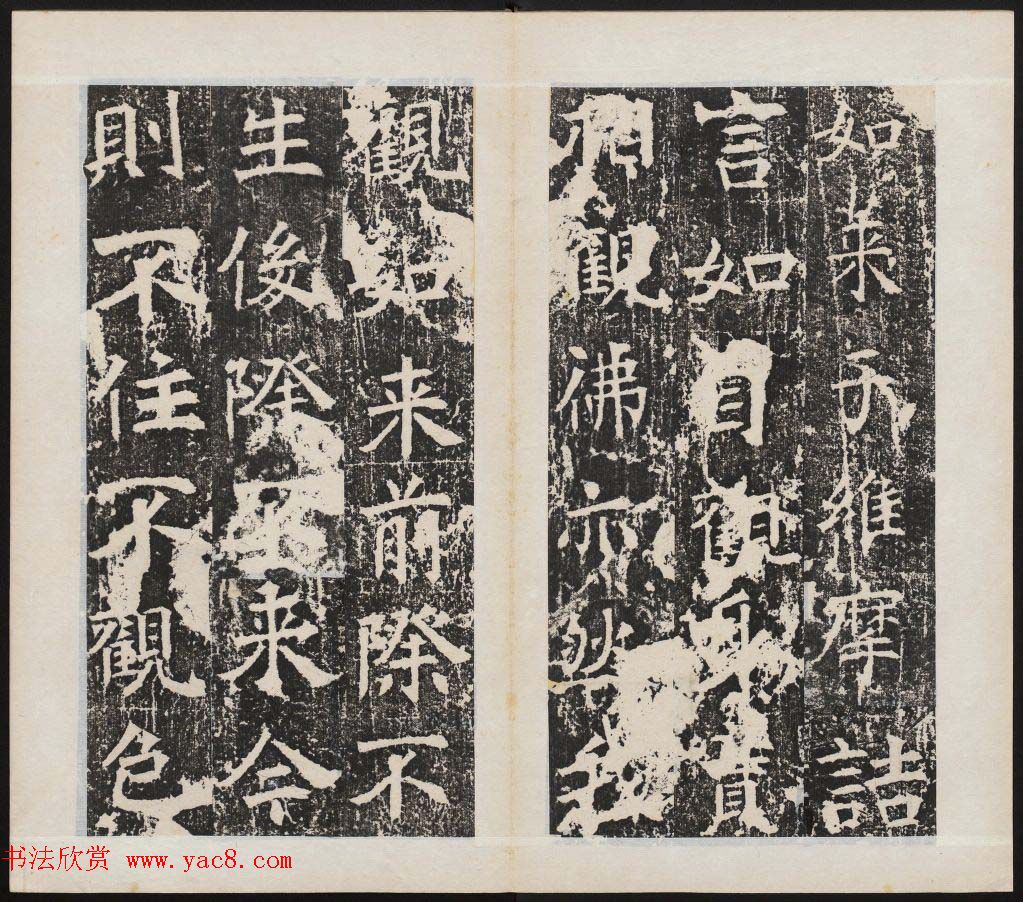 如来乎維摩詰
言如自觀身實
相觀佛亦然我
觀如来前際不
生後際来今
則不住不觀色
书法欣赏 www.yac8.com